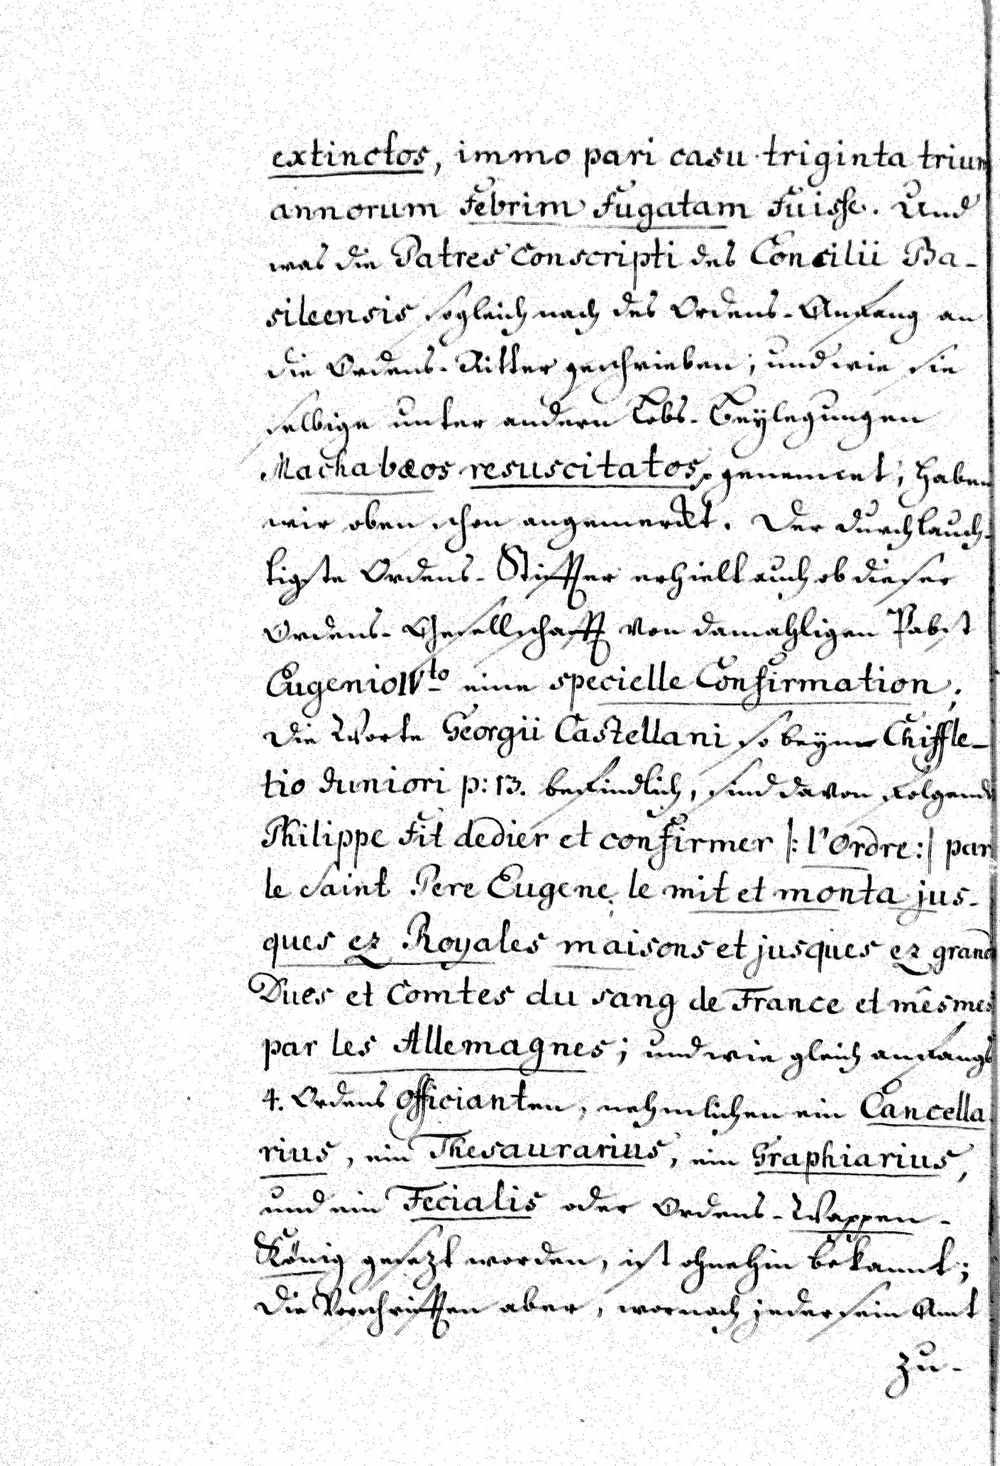 extinctos, immo pari casu triginta trium
annorum Febrim fugatam fuisse. Und
was die Patres Conscripti des Concilii Ba-
sileensis sogleich nach des Ordens-Anfang an
die Ordens-Ritter geschrieben, und wie sie
selbige unter andern Lobs-Beylegungen
Machabæos resuscitatos, genennet, haben
wir oben schon angemerckt. Der durchlauch-
tigste Ordens-Stiffter erhielt auch ob dieser
Ordens-Gesellschafft von damahligen Pabst
Eugenio IVto eine specielle Confirmation,
die Worte Georgii Castellani so beym Chiffle-
tio Juniori p: 13. befindlich, sind davon folgende
Philippe fit dedier et confirmer |: l'Ordre :| par
le Saint Pere Eugene, le mit et monta jus-
ques ez Royales maisons et jusques ez grand
Ducs et Comtes du sang de France et mêsmes
par les Allemagnes; und wie gleich anfangs
4. Ordens Officianten, nehmlichen ein Cancella
rius, ein Thesaurarius, ein Graphiarius,
und ein Fecialis oder Ordens-Wappen-
König gesezt worden, ist ohnehin bekannt;
die Vorschrifften aber, wornach jeder sein Amt
zu-